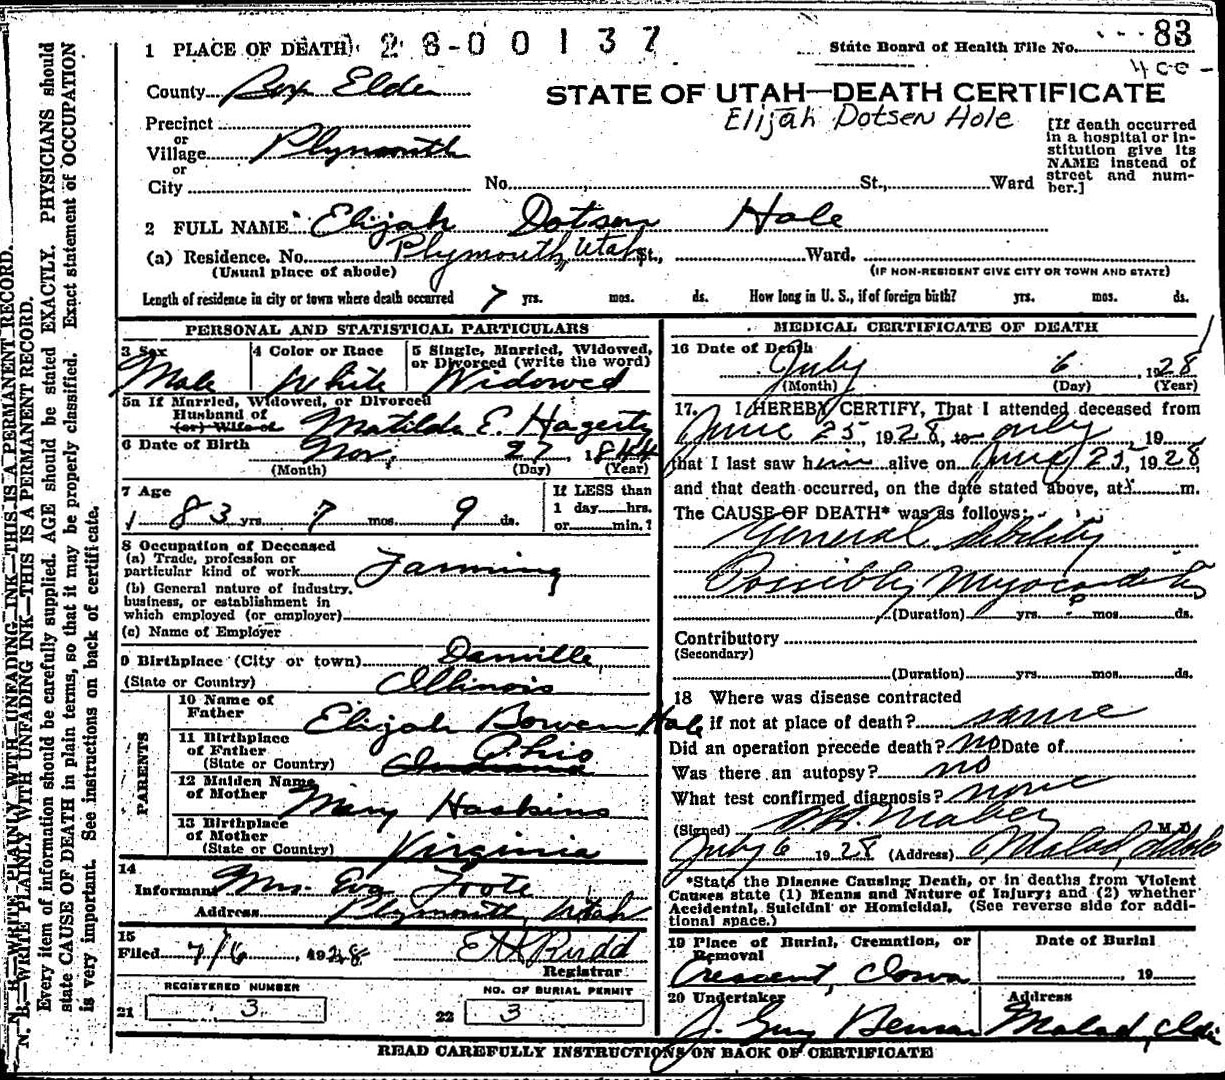 1 PLACE OF DEATH 28-00137
State Board of Health File No. 83
400-
County Box Elder
STATE OF UTAH—DEATH CERTIFICATE
Elijah Dotsen Hole
Precinct
or
Village Plymouth
or
City No. St., Ward
[If death occurred
in a hospital or in-
stitution give its
NAME instead of
street and num-
ber.]
2 FULL NAME Elijah Dotsen Hale
(a) Residence. No. Plymouth, Utah St., Ward.
(Usual place of abode) (IF NON-RESIDENT GIVE CITY OR TOWN AND STATE)
Length of residence in city or town where death occurred 7 yrs. mos. ds. How long in U. S., if of foreign birth? yrs. mos. ds.
PERSONAL AND STATISTICAL PARTICULARS
3 Sex 4 Color or Race 5 Single, Married, Widowed,
or Divorced (write the word)
Male White Widowed
5a If Married, Widowed, or Divorced
Husband of
(or) Wife of Matilda E. Hagerty
6 Date of Birth Nov. 27, 1844
(Month) (Day) (Year)
7 Age If LESS than
1 day hrs.
or min.?
83 yrs. 7 mos. 9 ds.
8 Occupation of Deceased
(a) Trade, profession or
particular kind of work Farming
(b) General nature of industry,
business, or establishment in
which employed (or employer)
(c) Name of Employer
9 Birthplace (City or town) Danville,
(State or Country) Illinois
PARENTS
10 Name of
Father Elijah Bowen Hale
11 Birthplace
of Father Ohio
(State or Country) Indiana
12 Maiden Name
of Mother Mary Haskins
13 Birthplace
of Mother
(State or Country) Virginia
14
Informant Mrs. Eva Foote
Address Plymouth, Utah
15
Filed 7/6, 1928 E H Rudd
Registrar
REGISTERED NUMBER NO. OF BURIAL PERMIT
21 3 22 3
MEDICAL CERTIFICATE OF DEATH
16 Date of Death
July 6, 1928
(Month) (Day) (Year)
17. I HEREBY CERTIFY, That I attended deceased from
June 25, 1928, to only, 19
that I last saw him alive on June 25, 1928,
and that death occurred, on the date stated above, at m.
The CAUSE OF DEATH* was as follows:
General debility
Possibly Myocarditis
(Duration) yrs. mos. ds.
Contributory
(Secondary)
(Duration) yrs. mos. ds.
18 Where was disease contracted
if not at place of death? same
Did an operation precede death? no Date of
Was there an autopsy? no
What test confirmed diagnosis? none
(Signed) Mabey M.D.
July 6 1928 (Address) Malad, Idaho
*State the Disease Causing Death, or in deaths from Violent
Causes state (1) Means and Nature of Injury; and (2) whether
Accidental, Suicidal or Homicidal. (See reverse side for addi-
tional space.)
19 Place of Burial, Cremation, or Date of Burial
Removal
Crescent, Iowa , 19
20 Undertaker Address
J. Guy Benson Malad, Ida
READ CAREFULLY INSTRUCTIONS ON BACK OF CERTIFICATE
N. B.—WRITE PLAINLY WITH UNFADING INK—THIS IS A PERMANENT RECORD.
N. B.—WRITE PLAINLY WITH UNFADING INK—THIS IS A PERMANENT RECORD.
Every item of information should be carefully supplied. AGE should be stated EXACTLY. PHYSICIANS should
state CAUSE OF DEATH in plain terms, so that it may be properly classified. Exact statement of OCCUPATION
is very important. See instructions on back of certificate.